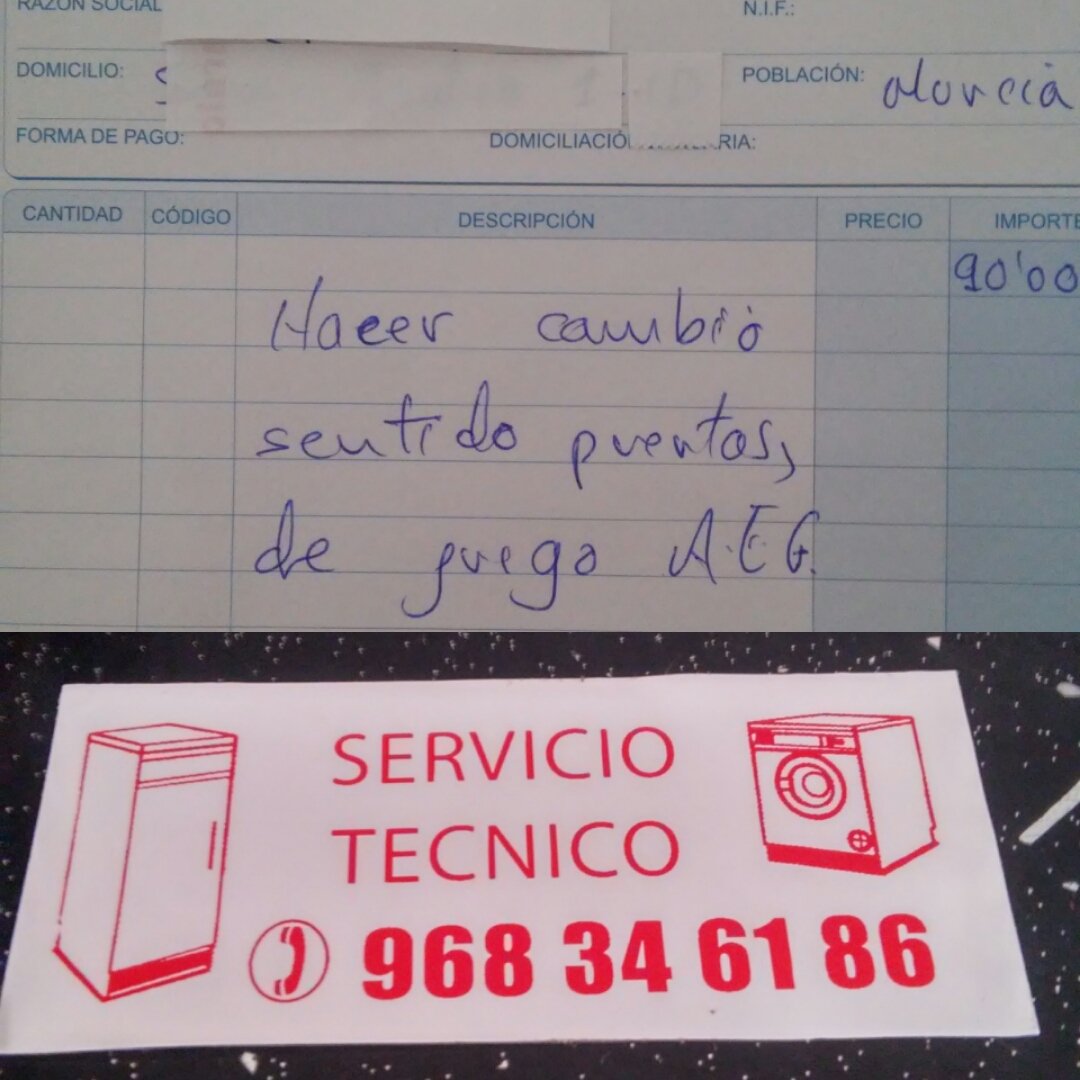 RAZÓN SOCIAL
N.I.F.:
DOMICILIO:
POBLACIÓN: Murcia
FORMA DE PAGO:
CANTIDAD CÓDIGO DESCRIPCIÓN PRECIO IMPORTE
90'00
Hacer cambio
sentido puertas,
de juego A.E.G.
SERVICIO
TECNICO
968 34 61 86